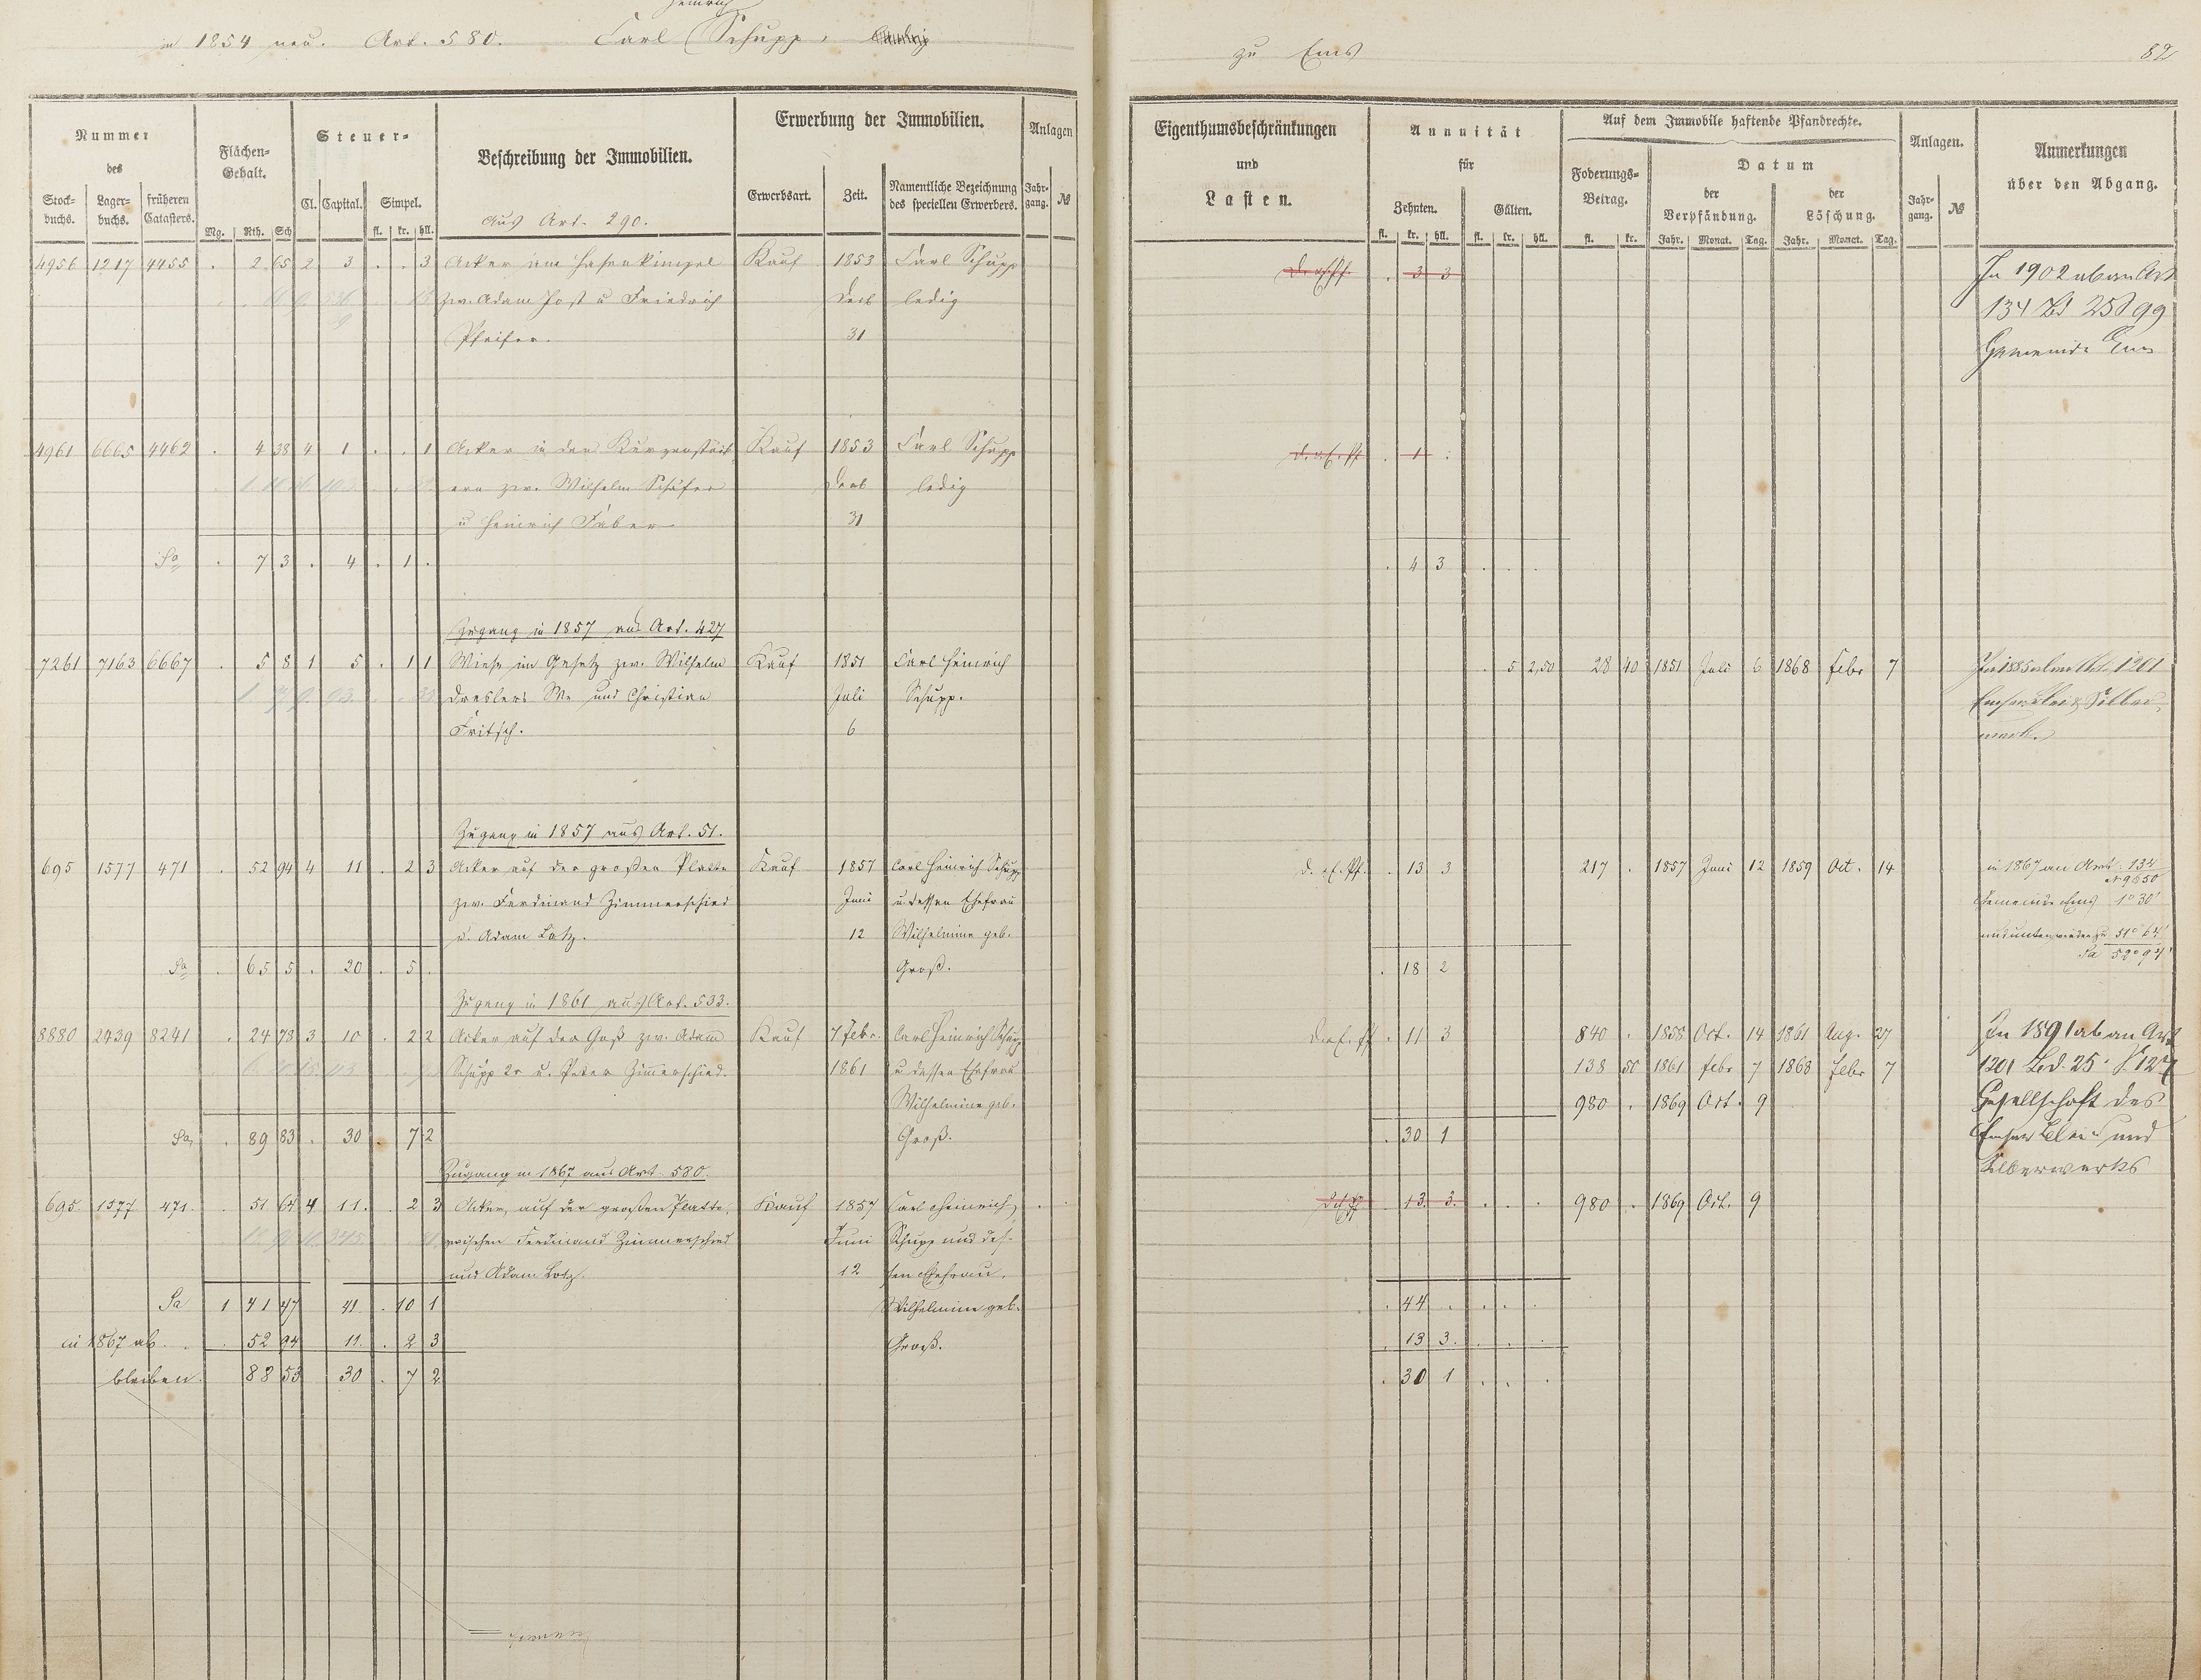 in 1854 neu. Art. 580. Carl Heinrich Schupp,
zu Ems 82
Nummer des
Stock-buchs. Lager-buchs. früheren Catasters.
Flächen-Gehalt.
Mg. Rth. Sch
Steuer-
Cl. Capital. Simpel.
fl. kr. hll.
Beschreibung der Immobilien.
Aus Art. 290.
Erwerbung der Immobilien.
Erwerbsart. Zeit. Namentliche Bezeichnung des speciellen Erwerbers.
Anlagen
Jahr-gang. №
Eigenthumsbeschränkungen und Lasten.
Annuität für
Zehnten. Gülten.
fl. kr. hll. fl. kr. hll.
Auf dem Immobile haftende Pfandrechte.
Foderungs-Betrag.
fl. kr.
Datum
der Verpfändung. der Löschung.
Jahr. Monat. Tag. Jahr. Monat. Tag.
Anlagen.
Jahr-gang. №
Anmerkungen über den Abgang.
4956 1217 4455 . 2 65 2 3 . . 3 Acker am Hasenkimpel Kauf 1853 Carl Schupp . 3 3 In 1902 ab an Art
zw. Adam Jost u Friedrich Decb ledig 134 Bd 25 S 99
Pfeifer. 31 Gemeinde Ems
4961 6665 4462 . 4 38 4 1 . . 1 Acker in den Kurzenstück Kauf 1853 Carl Schupp d. ef. Pf . 1 .
ern zw. Wilhelm Schäfer Decb ledig
u Heinrich Faber 31
Sa . 7 3 . 4 . 1 . . 4 3 . . .
Zugang in 1857 aus Art. 427
7261 7163 6667 . 5 8 1 5 . 1 1 Wiese im Gesetz zw. Wilhelm Kauf 1851 Carl Heinrich . 5 2,50 28 40 1851 Juli 6 1868 Febr 7 In 1885 ab an Art. 1201
Dreslers We und Christian Juli Schupp. Emser Blei & Silber
Fritsch. 6 werk.
Zugang in 1857 aus Art. 51.
695 1577 471 . 52 94 4 11 . 2 3 Acker auf der großen Platte Kauf 1857 Carl Heinrich Schupp d. ef. Pf. . 13 3 217 . 1857 Juni 12 1859 Oct. 14 in 1867 an Art. 134
zw. Ferdinand Zimmerschied Juni u. dessen Ehefrau Gemeinde Ems 1° 30'
u. Adam Lotz. 12 Wilhelmine geb.
Sa . 65 5 . 20 . 5 . Groß. . 18 2
Zugang in 1861 aus Art. 533.
8880 2439 8241 . 24 78 3 10 . 2 2 Acker auf der Goß zw. Adam Kauf 7 Febr. Carl Heinrich Schupp d. ef. Pf . 11 3 840 . 1858 Oct. 14 1861 Aug. 27 In 1891 ab an Art
Schupp 2r u. Peter Zimmerschied. 1861 u dessen Ehefrau 138 50 1861 Febr 7 1868 Febr 7 1201 Bd. 25
Wilhelmine geb. 980 . 1869 Oct. 9 Gesellschaft des
Sa . 89 83 . 30 . 7 2 Groß. . 30 1 Emser Blei und
Zugang in 1867 aus Art 580. Silberwerks
695 1577 471 . 51 64 4 11 . 2 3 Acker, auf der großen Platte, Kauf 1857 Carl Heinrich . 13 3 . . . 980 . 1869 Oct. 9
zwischen Ferdinand Zimmerschied Juni Schupp und des-
und Adam Lotz. 12 sen Ehefrau,
Sa 1 41 47 41 . 10 1 Wilhelmine geb. . 44 . . . .
in 1867 ab . . 52 94 11 . 2 3 Groß. . 13 3 . . .
bleiben 88 53 30 . 7 2 . 30 1 . . .